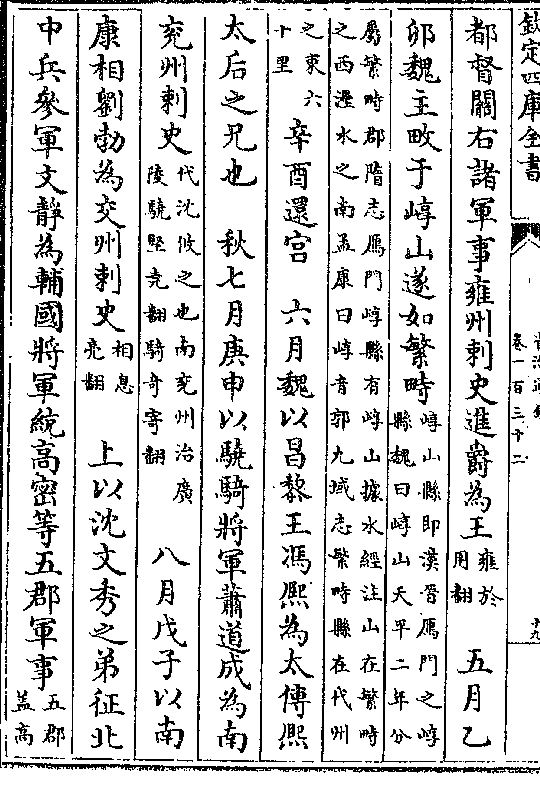 欽定四庫全書
卷一百三十二
都督關右諸軍事雍州刺史進爵為王雍於用翻 五月乙
卯魏主畋于崞山遂如繁畤崞山縣即漢晉鴈門之崞縣魏曰崞山天平二年分
屬繁畤郡隋志鴈門崞縣有崞山據水經注山在繁畤之西㶟水之南孟康曰崞音郭九域志繁畤縣在代州
之東六十里 辛酉還宮 六月魏以昌黎王馮熙為太傅熙
太后之兄也 秋七月庚申以驍騎將軍蕭道成為南
兖州刺史代沈攸之也南兖州治廣陵驍堅堯翻騎奇寄翻 八月戊子以南
康相劉勃為交州刺史相息亮翻 上以沈文秀之弟征北
中兵參軍文靜為輔國將軍統高密等五郡軍事五郡蓋高